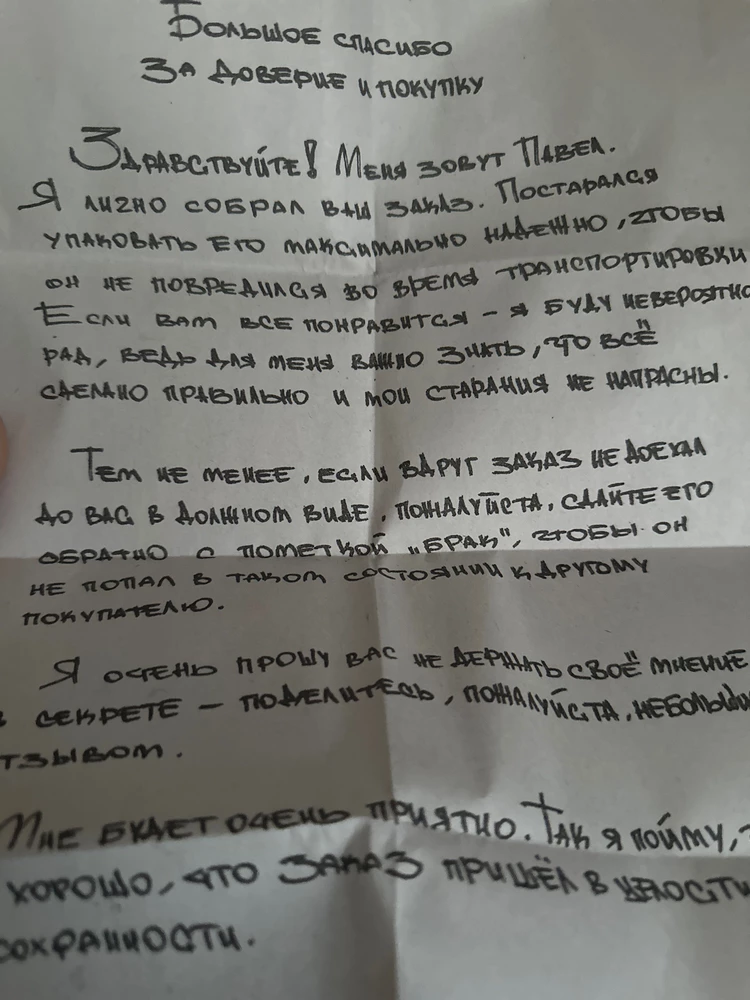 Большое спасибо
за доверие и покупку
Здравствуйте! Меня зовут Павел.
Я лично собрал ваш заказ. Постарался
упаковать его максимально надежно, чтобы
он не повредился во время транспортировки
Если вам все понравится - я буду невероятно
рад, ведь для меня важно знать, что всё
сделано правильно и мои старания не напрасны.
Тем не менее, если вдруг заказ не доехал
до вас в должном виде, пожалуйста, сдайте его
обратно с пометкой "брак", чтобы он
не попал в таком состоянии к другому
покупателю.
Я очень прошу вас не держать своё мнение
в секрете - поделитесь, пожалуйста, небольши
тзывом.
Мне будет очень приятно. Так я пойму,
хорошо, что заказ пришёл в целости
сохранности.